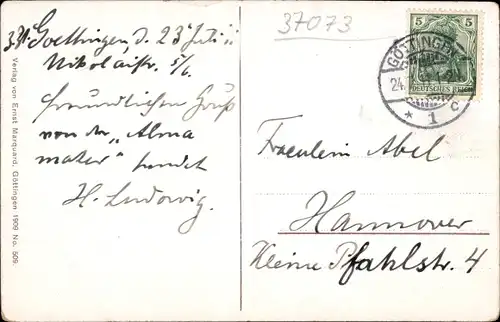 z.Zt. Goettingen d. 23 Juli 11
Nikolaistr. 5/6
freundlichen Gruß
von der "Alma
mater" sendet
H. Ludwig.
Verlag von Ernst Marquard, Göttingen 1909 No. 509
37073
5 5
DEUTSCHES REICH
GÖTTINGEN
24.
* 1 c
Fraeulein Abel
Hannover
Kleine Pfahlstr. 4